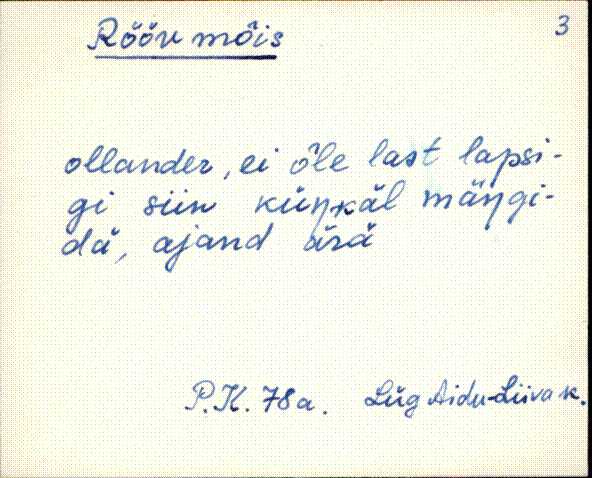 3
Rõõv mõis
ollander, ei õle last lapsi-
gi siin küŋkäl mäŋgi-
dä, ajand ärä
P.K. 78a. Lüg Aidu-Liiva k.